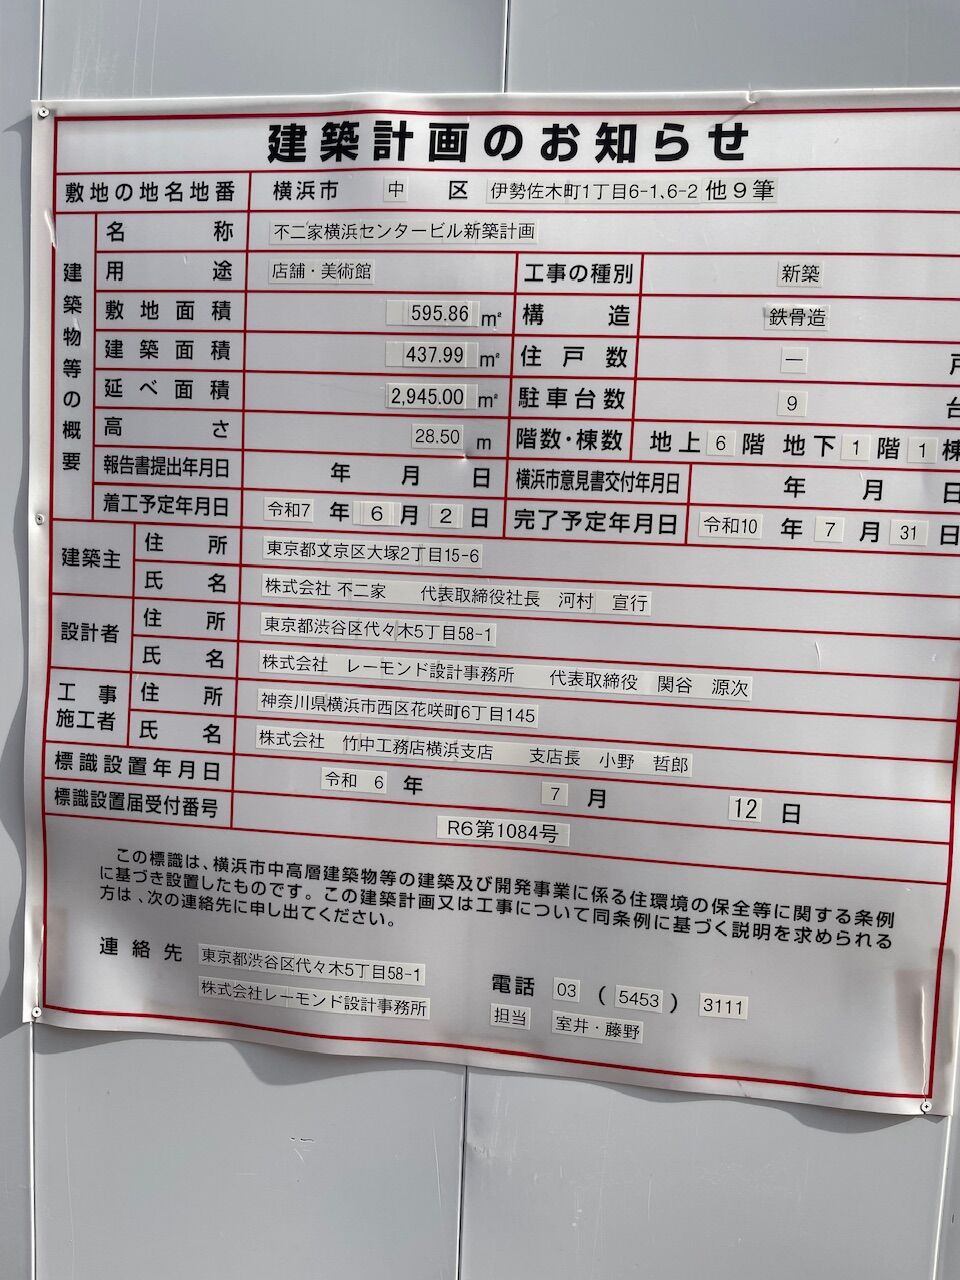 建築計画のお知らせ
敷地の地名地番 横浜市 中 区 伊勢佐木町1丁目6-1、6-2 他9筆
建築物等の概要
名称 不二家横浜センタービル新築計画
用途 店舗・美術館 工事の種別 新築
敷地面積 595.86 ㎡ 構造 鉄骨造
建築面積 437.99 ㎡ 住戸数 ー 戸
延べ面積 2,945.00 ㎡ 駐車台数 9 台
高さ 28.50 m 階数・棟数 地上 6 階 地下 1 階 1 棟
報告書提出年月日 年 月 日 横浜市意見書交付年月日 年 月 日
着工予定年月日 令和7 年 6 月 2 日 完了予定年月日 令和10 年 7 月 31 日
建築主 住所 東京都文京区大塚2丁目15-6
氏名 株式会社 不二家 代表取締役社長 河村 宣行
設計者 住所 東京都渋谷区代々木5丁目58-1
氏名 株式会社 レーモンド設計事務所 代表取締役 関谷 源次
工事施工者 住所 神奈川県横浜市西区花咲町6丁目145
氏名 株式会社 竹中工務店横浜支店 支店長 小野 哲郎
標識設置年月日 令和 6 年 7 月 12 日
標識設置届受付番号 R6第1084号
この標識は、横浜市中高層建築物等の建築及び開発事業に係る住環境の保全等に関する条例
に基づき設置したものです。この建築計画又は工事について同条例に基づく説明を求められる
方は、次の連絡先に申し出てください。
連絡先 東京都渋谷区代々木5丁目58-1 電話 03 (5453) 3111
株式会社レーモンド設計事務所 担当 室井・藤野